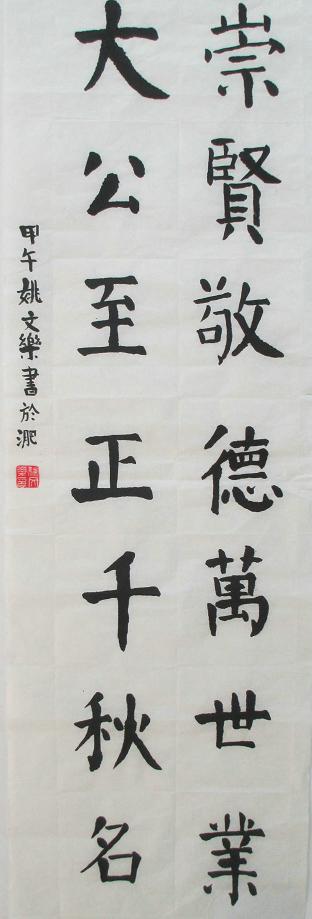 崇賢敬德萬世業
大公至正千秋名
甲午姚文樂書於淝